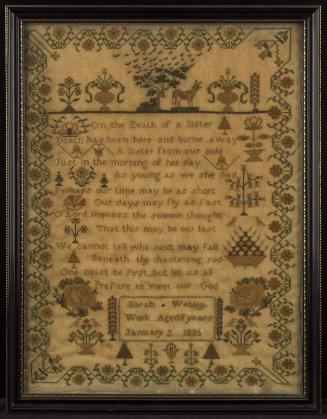 On the Death of a Sister
Death has been here and borne away
A Sister from our side
Just in the morning of her day
As young as we she died
Perhaps our time may be as short
Our days may fly as fast
O Lord impress the solemn thought
That this may be our last
We cannot tell who next may fall
Beneath thy chastening rod
One must be first but let us all
Prepare to meet our God
Sarah
Work Aged 8 years
January 2